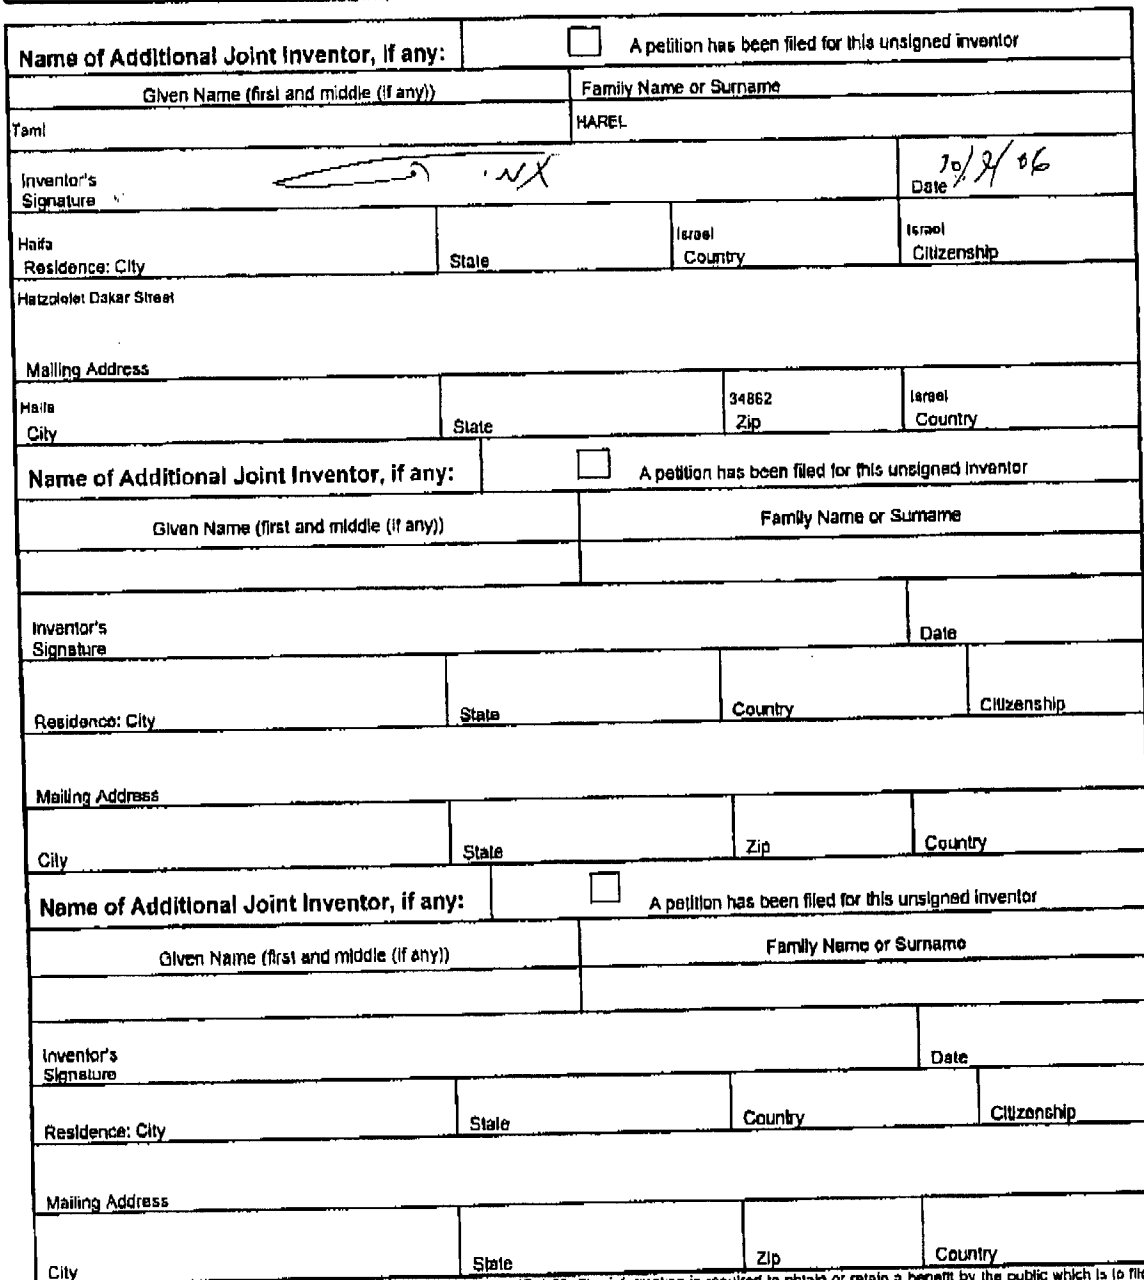 Name of Additional Joint Inventor, if any: A petition has been filed for this unsigned inventor
Given Name (first and middle (if any)) Family Name or Surname
Tami HAREL
Inventor's
Signature Date
Haifa Israel Israel
Residence: City State Country Citizenship
Hatzolelet Dakar Street
Mailing Address
Haifa 34862 Israel
City State Zip Country
Name of Additional Joint Inventor, if any: A petition has been filed for this unsigned inventor
Given Name (first and middle (if any)) Family Name or Surname
Inventor's
Signature Date
Residence: City State Country Citizenship
Mailing Address
City State Zip Country
Name of Additional Joint Inventor, if any: A petition has been filed for this unsigned inventor
Given Name (first and middle (if any)) Family Name or Surname
Inventor's
Signature Date
Residence: City State Country Citizenship
Mailing Address
City State Zip Country
information is required to obtain or retain a benefit by the public which is to file